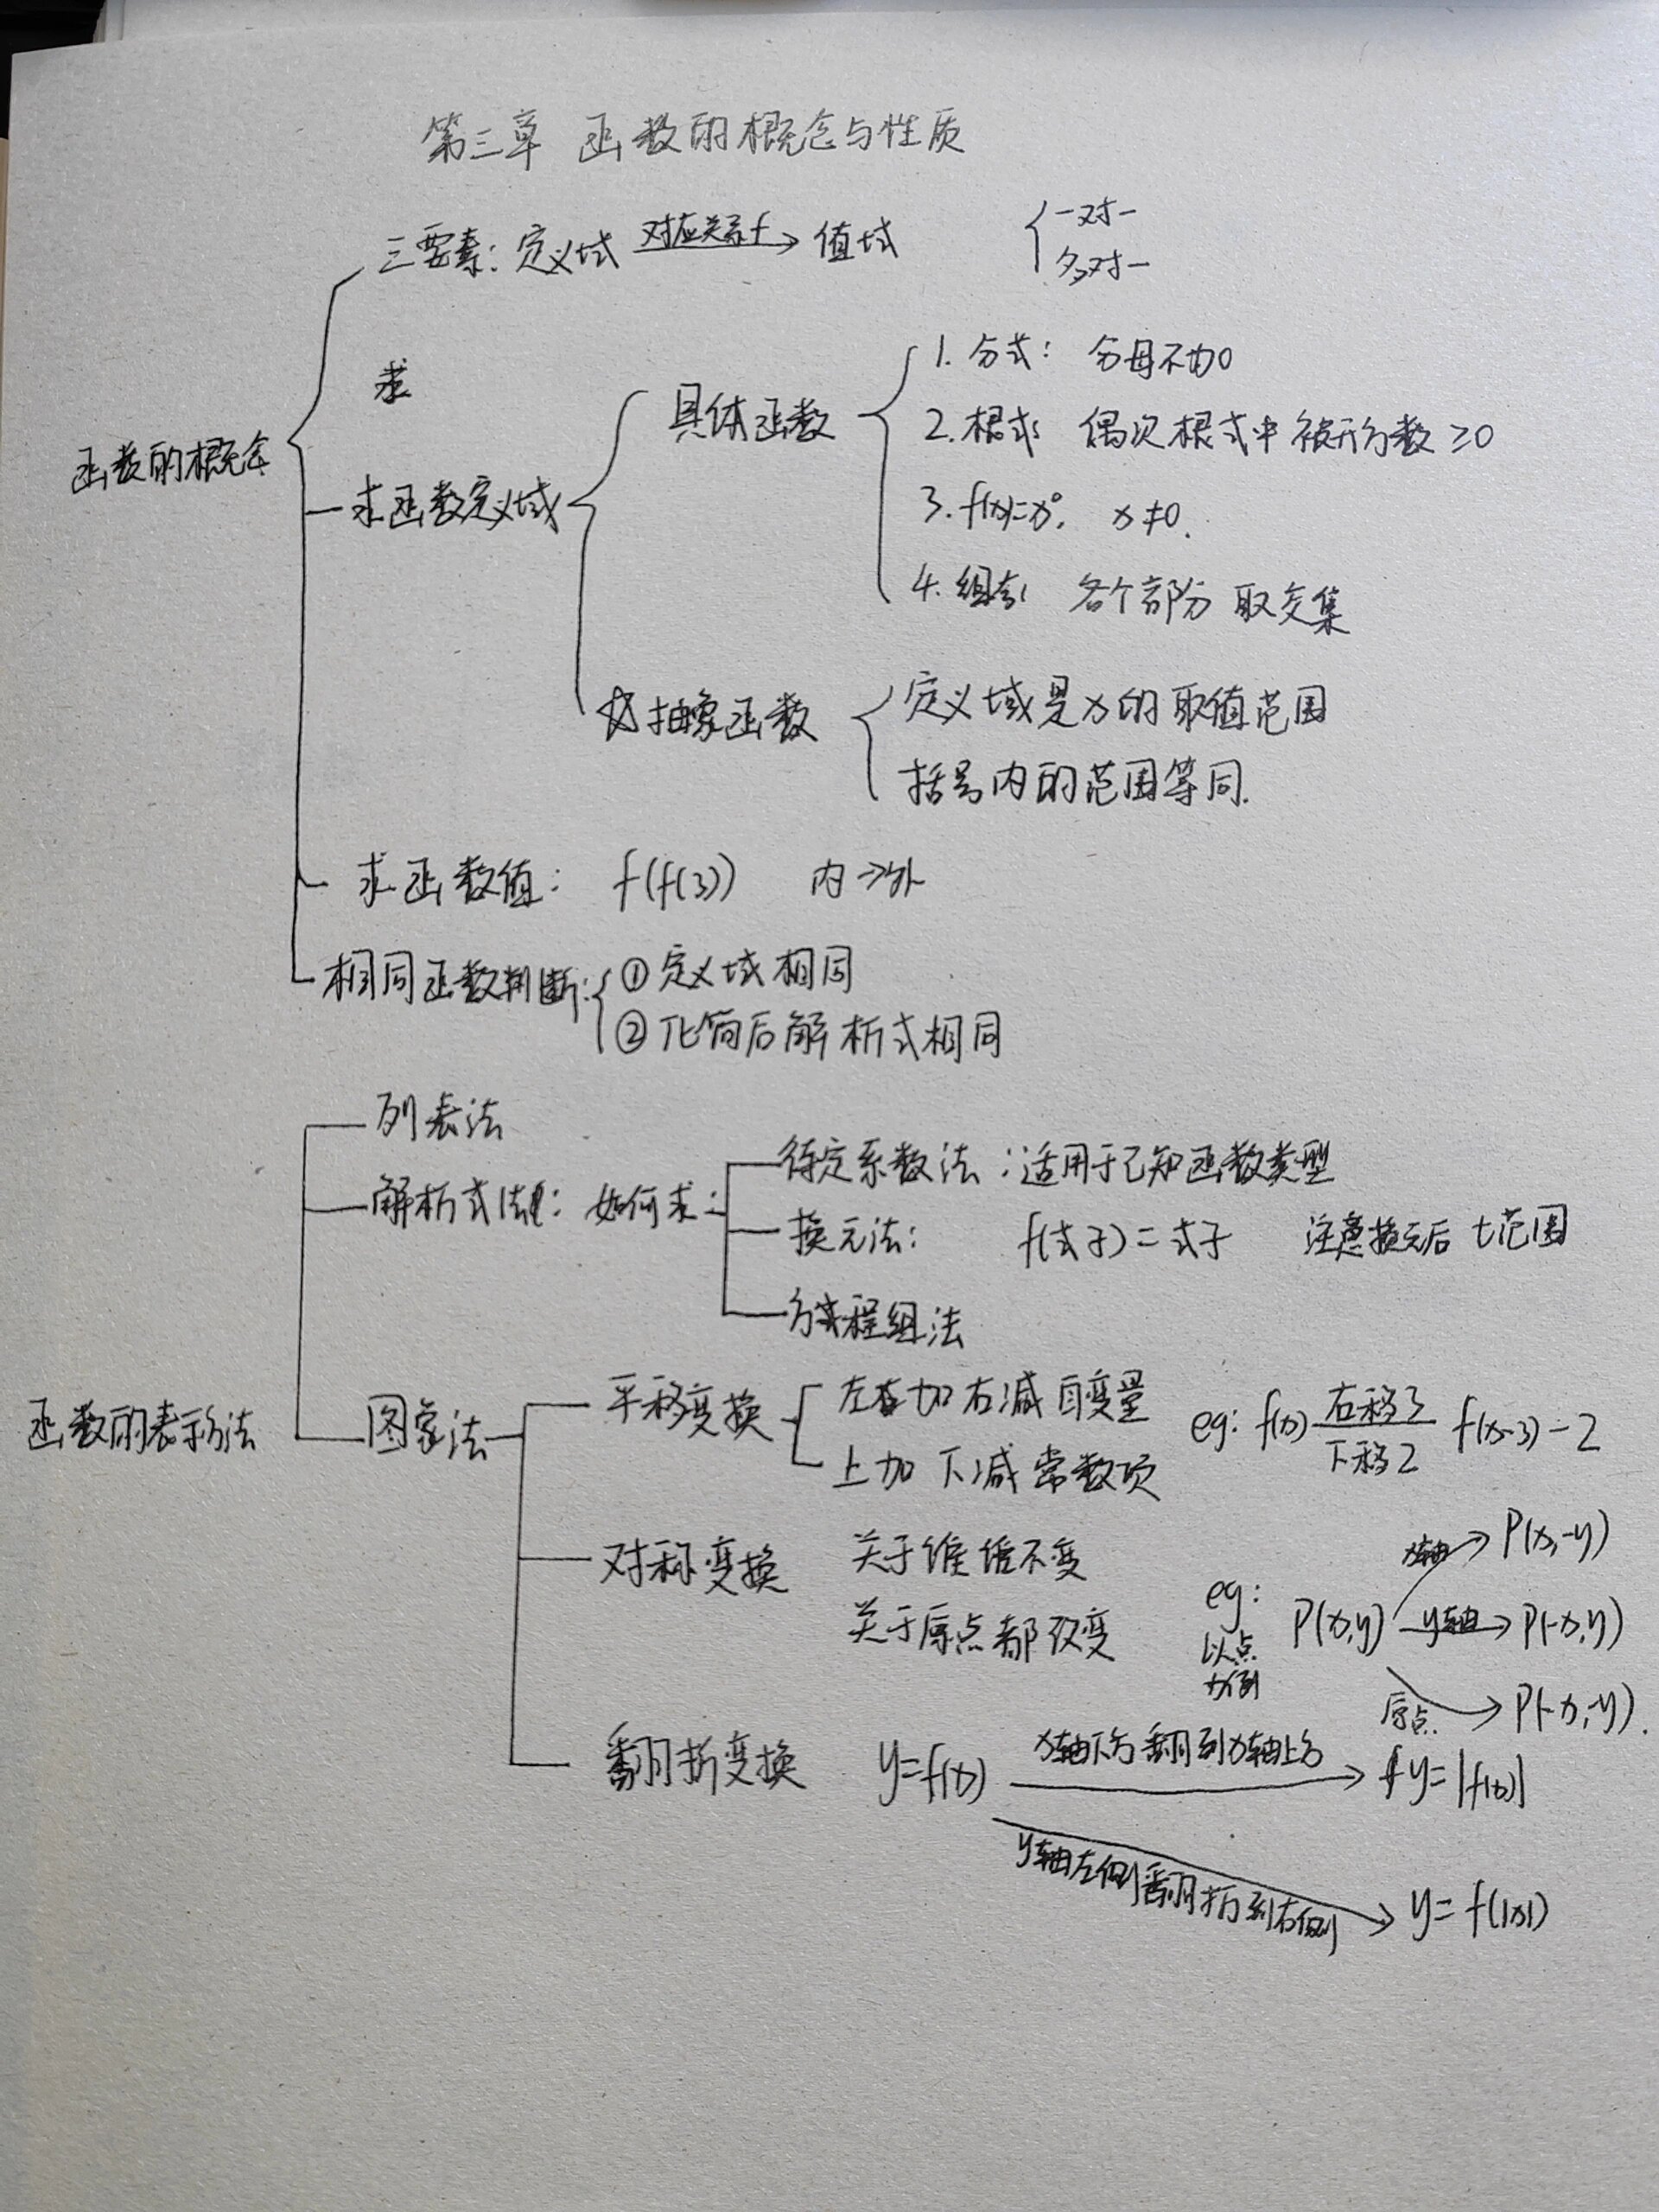 第三章 函数的概念与性质
三要素：定义域 对应关系f→ 值域 一对一
多对一
函数的概念
求
求函数定义域
具体函数
1. 分式： 分母不为0
2. 根式 偶次根式中被开方数≥0
3. f(x)=x⁰. x≠0.
4. 组合 各个部分 取交集
☆抽象函数
定义域是x的取值范围
括号内的范围等同.
求函数值： f(f(3)) 内→外
相同函数判断： ①定义域相同
②化简后解析式相同
函数的表示法
列表法
解析式法： 如何求：
待定系数法：适用于已知函数类型
换元法： f(式子)=式子 注意换元后 t范围
方程组法
图象法
平移变换
左加右减 自变量
上加 下减 常数项
eg: f(x) 右移3 下移2 f(x-3)-2
对称变换 关于谁谁不变
关于原点都改变
eg:
以点
为例
P(x,y) x轴→ P(x,-y)
y轴→ P(-x,y)
原点→ P(-x,-y).
翻折变换 y=f(x) x轴下方翻到x轴上方→ y=|f(x)|
y轴左侧翻折到右侧→ y=f(|x|)